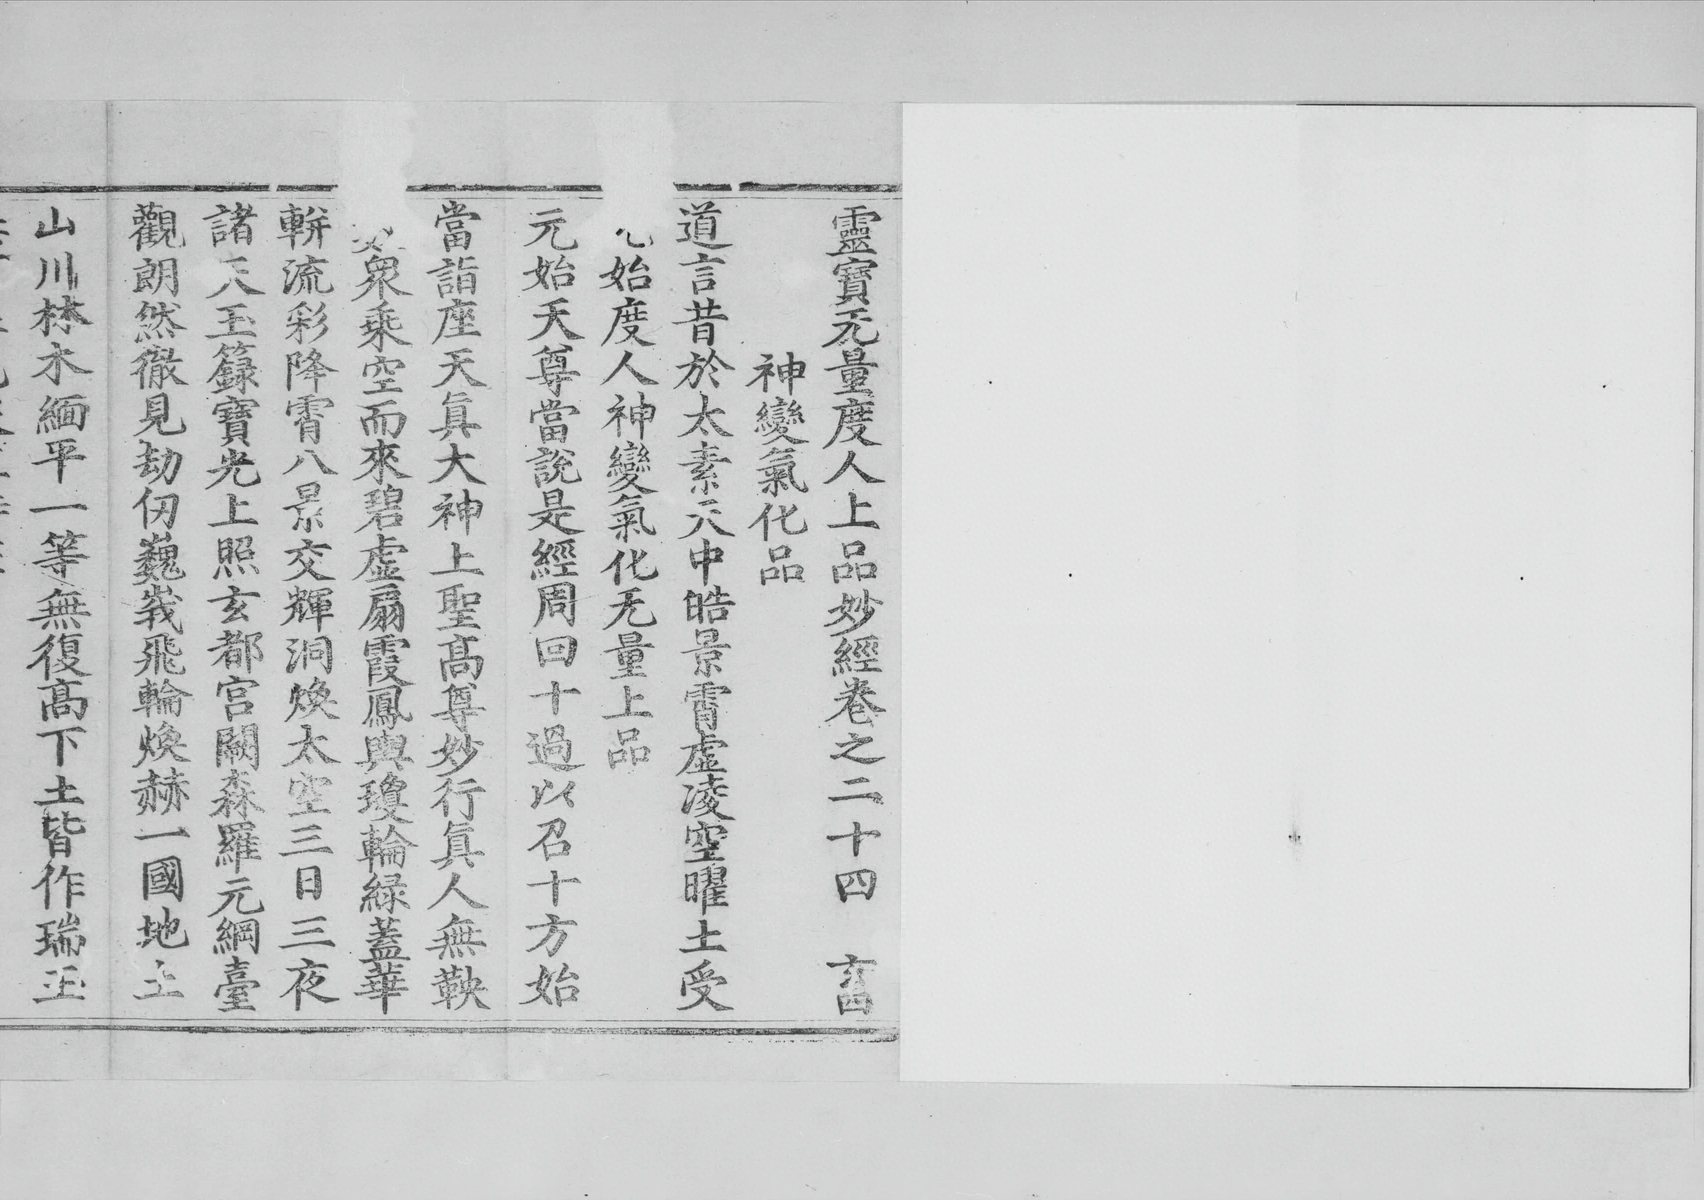 靈寶无量度人上品妙經卷之二十四 玄四
神變氣化品
道言昔於太素天中皓景霄虛凌空曜土受
元始度人神變氣化无量上品
元始天尊當說是經周回十過以召十方始
當詣座天眞大神上聖高尊妙行眞人無鞅
數衆乘空而來碧虛扇霞鳳輿瓊輪綠蓋華
輧流彩降霄八景交輝洞煥太空三日三夜
諸天玉籙寶光上照玄都宮闕森羅元綱臺
觀朗然徹見劫仞巍峩飛輪煥赫一國地土
山川林木緬平一等無復高下土皆作瑞玉